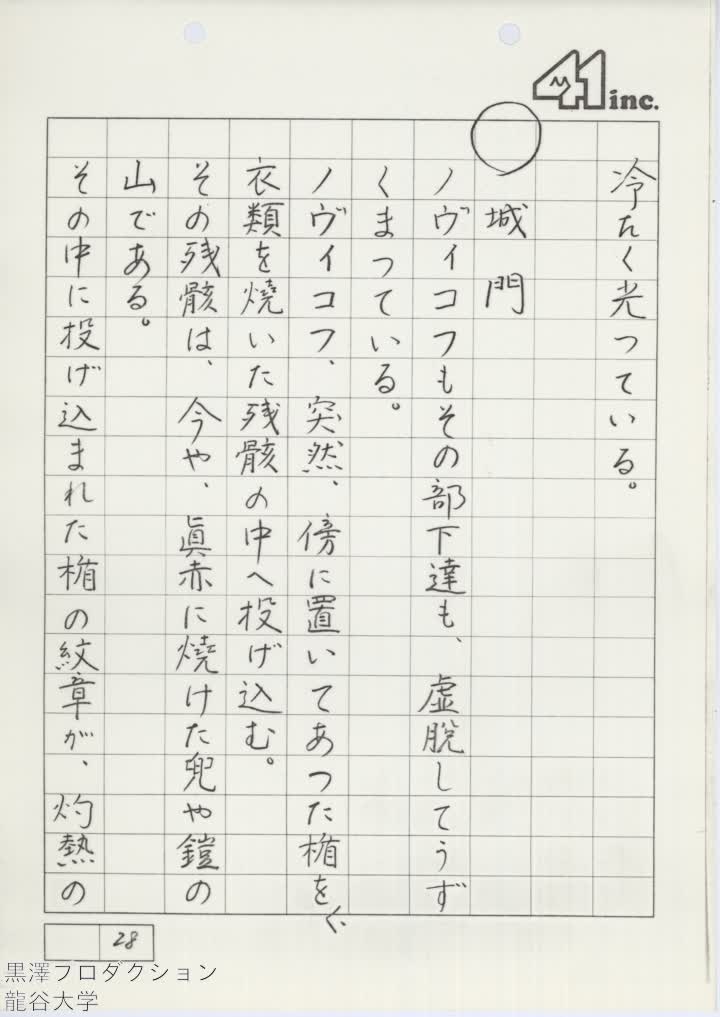 41 inc.
冷たく光つている。
城門
ノヴイコフもその部下達も、虚脱してうず
くまつている。
ノヴイコフ、突然、傍に置いてあつた楯を、
衣類を燒いた残骸の中へ投げ込む。
その残骸は、今や、眞赤に燒けた兜や鎧の
山である。
その中に投げ込まれた楯の紋章が、灼熱の
28
黒澤プロダクション
龍谷大学